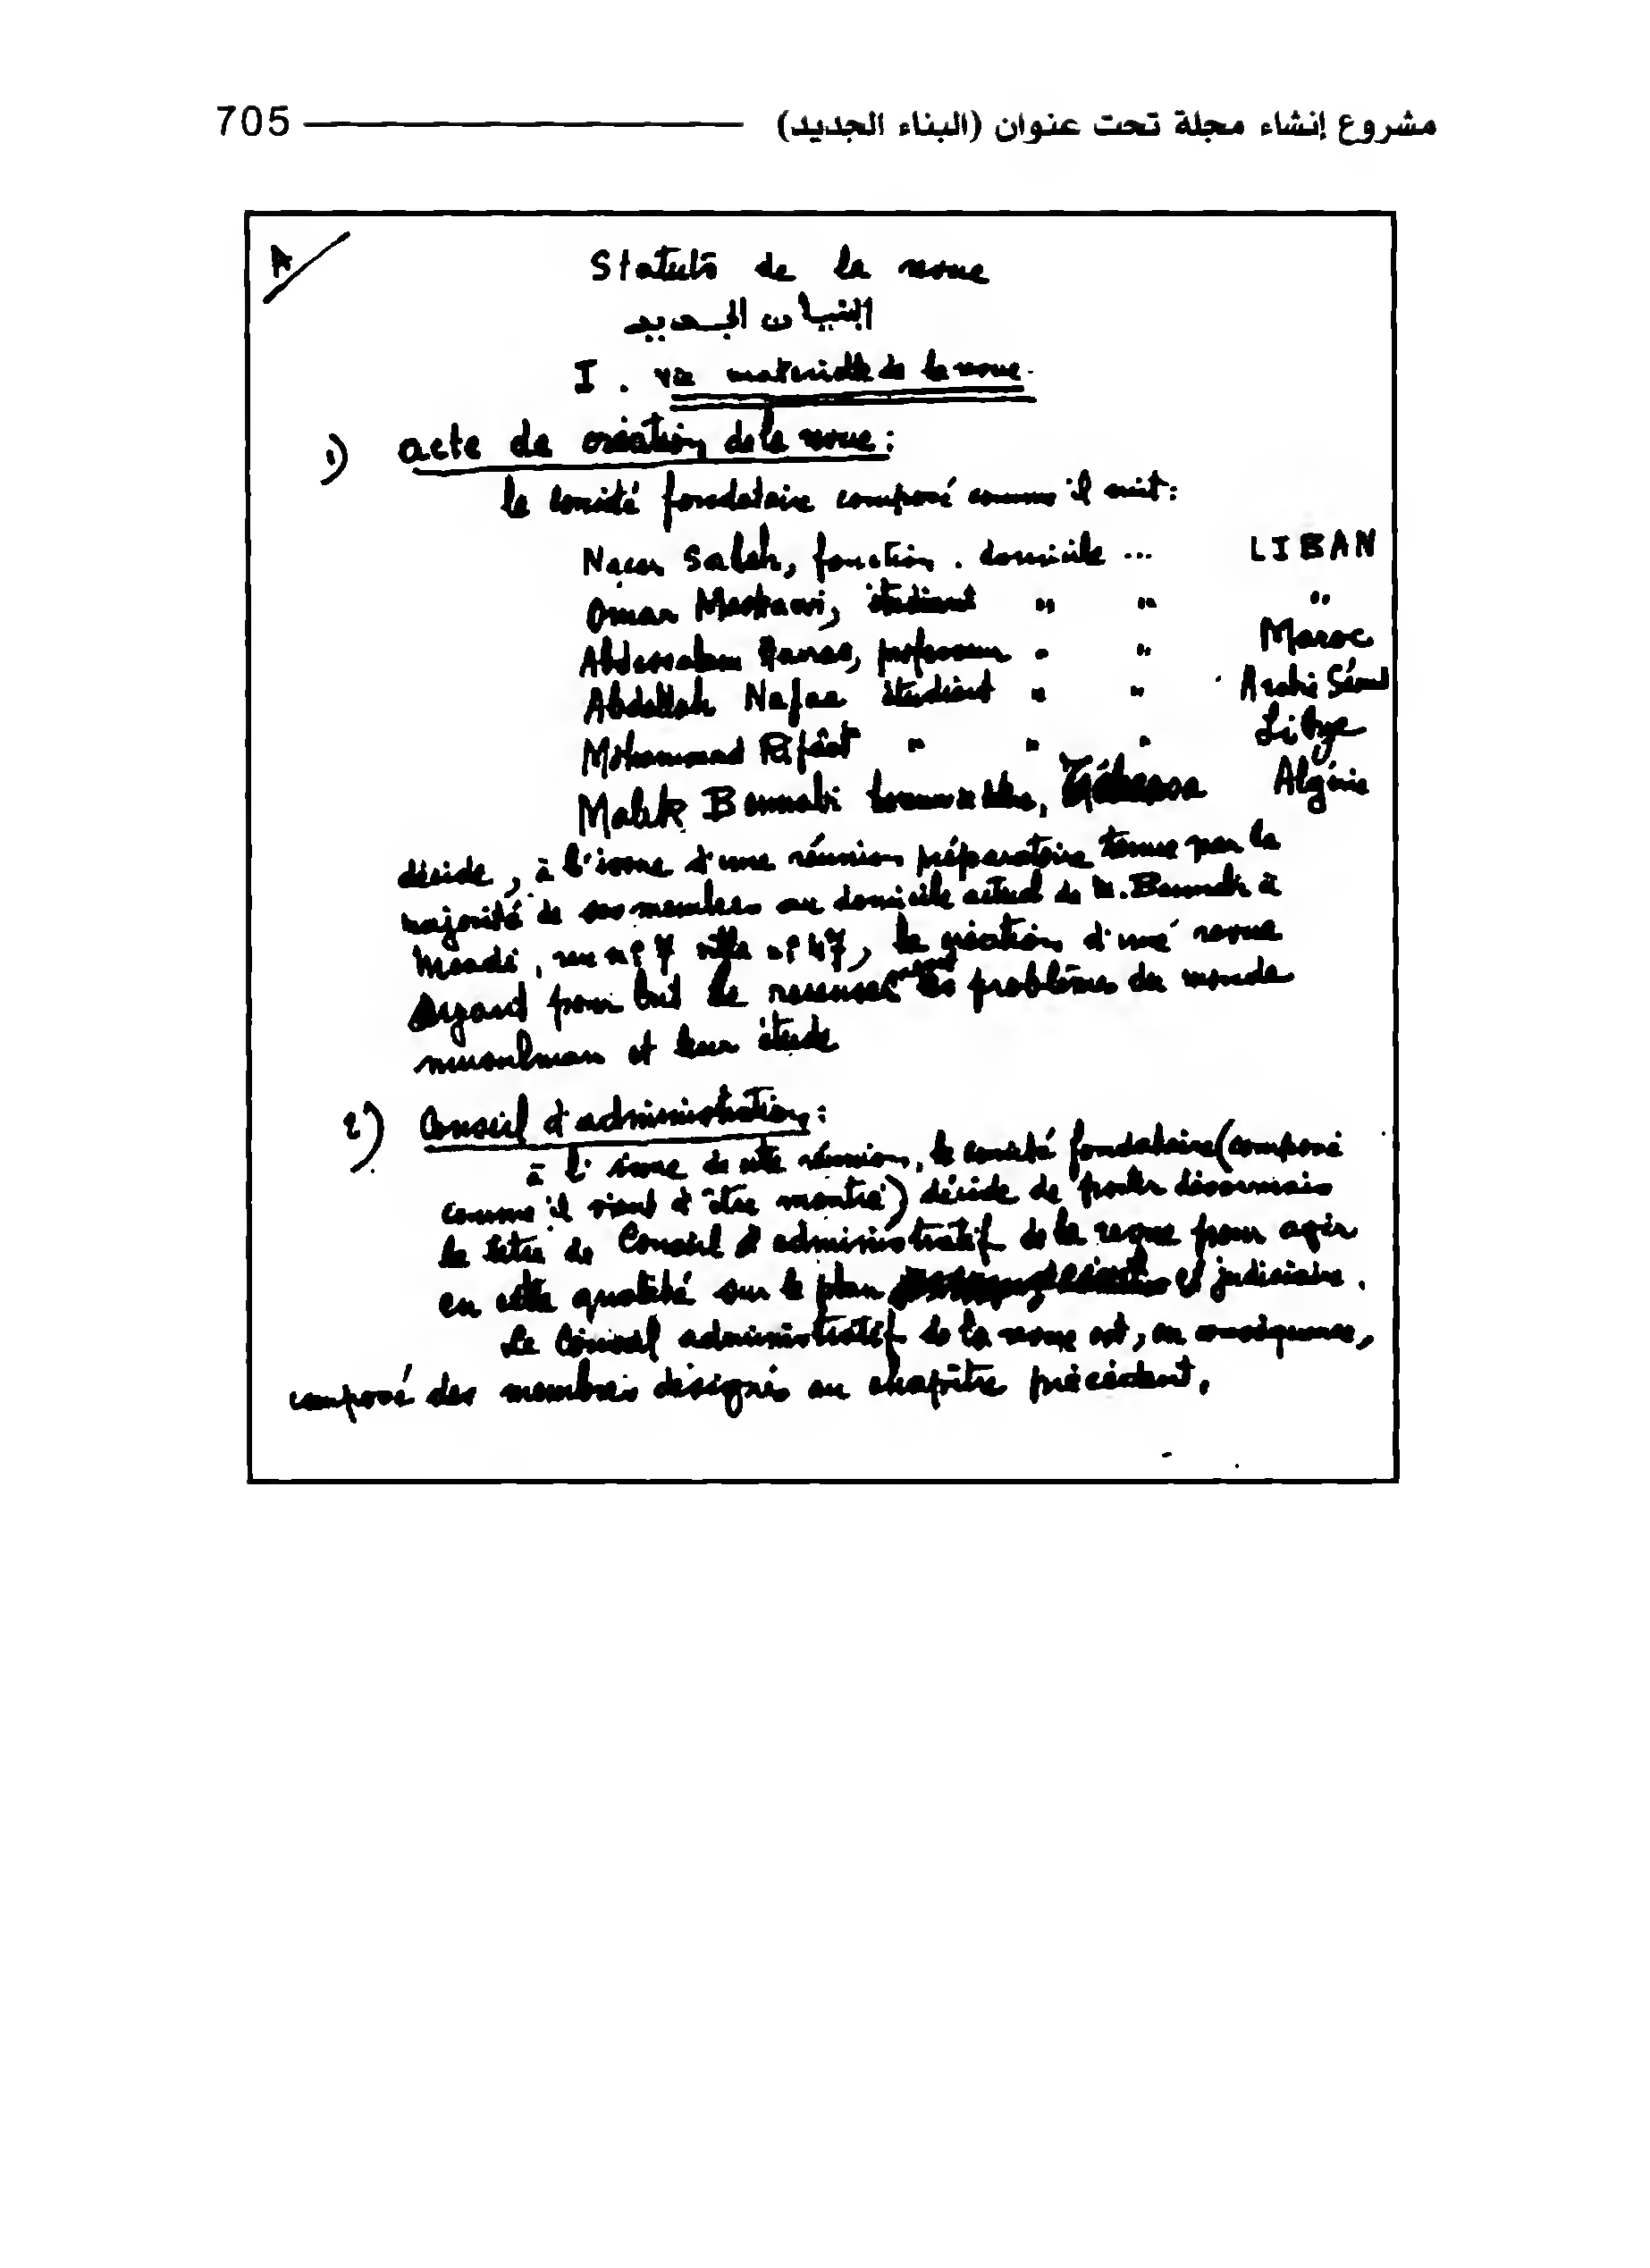 مشروع إنشاء مجلة تحت عنوان (البناء الجديد) 705
A
Statuts de la revue
البنيان الجديد
I. vie materielle de la revue.
1) acte de création de la revue :
le comité fondataire composé comme il suit :
Naçer Saleh, fonction. domicile ... LIBAN
Omar Meskawi, étudiant " " "
Abdessalem Harras, professeur " " Maroc
Abdallah Nafaa étudiant " " Arabie Séoud
Mohammed Rifâat " " " Libye
Malek Bennabi Tébessa Algérie
décide, à l'issue d'une réunion préparatoire tenue par la
majorité de ses membres au domicile actuel de M. Bennabi à
Meadi, rue n° 7 villa n° 47, la création d'une revue
ayant pour but de recenser les problèmes du monde
musulman et leur étude
2) Conseil d'administration :
à l'issue de cette réunion, le comité fondataire (composé
comme il vient d'être montré) décide de porter désormais
le titre de Conseil d'administratif de la revue pour agir
en cette qualité sur le plan et judiciaire.
Le Conseil administratif de la revue est, en conséquence,
composé des membres désignés au chapître précédent.